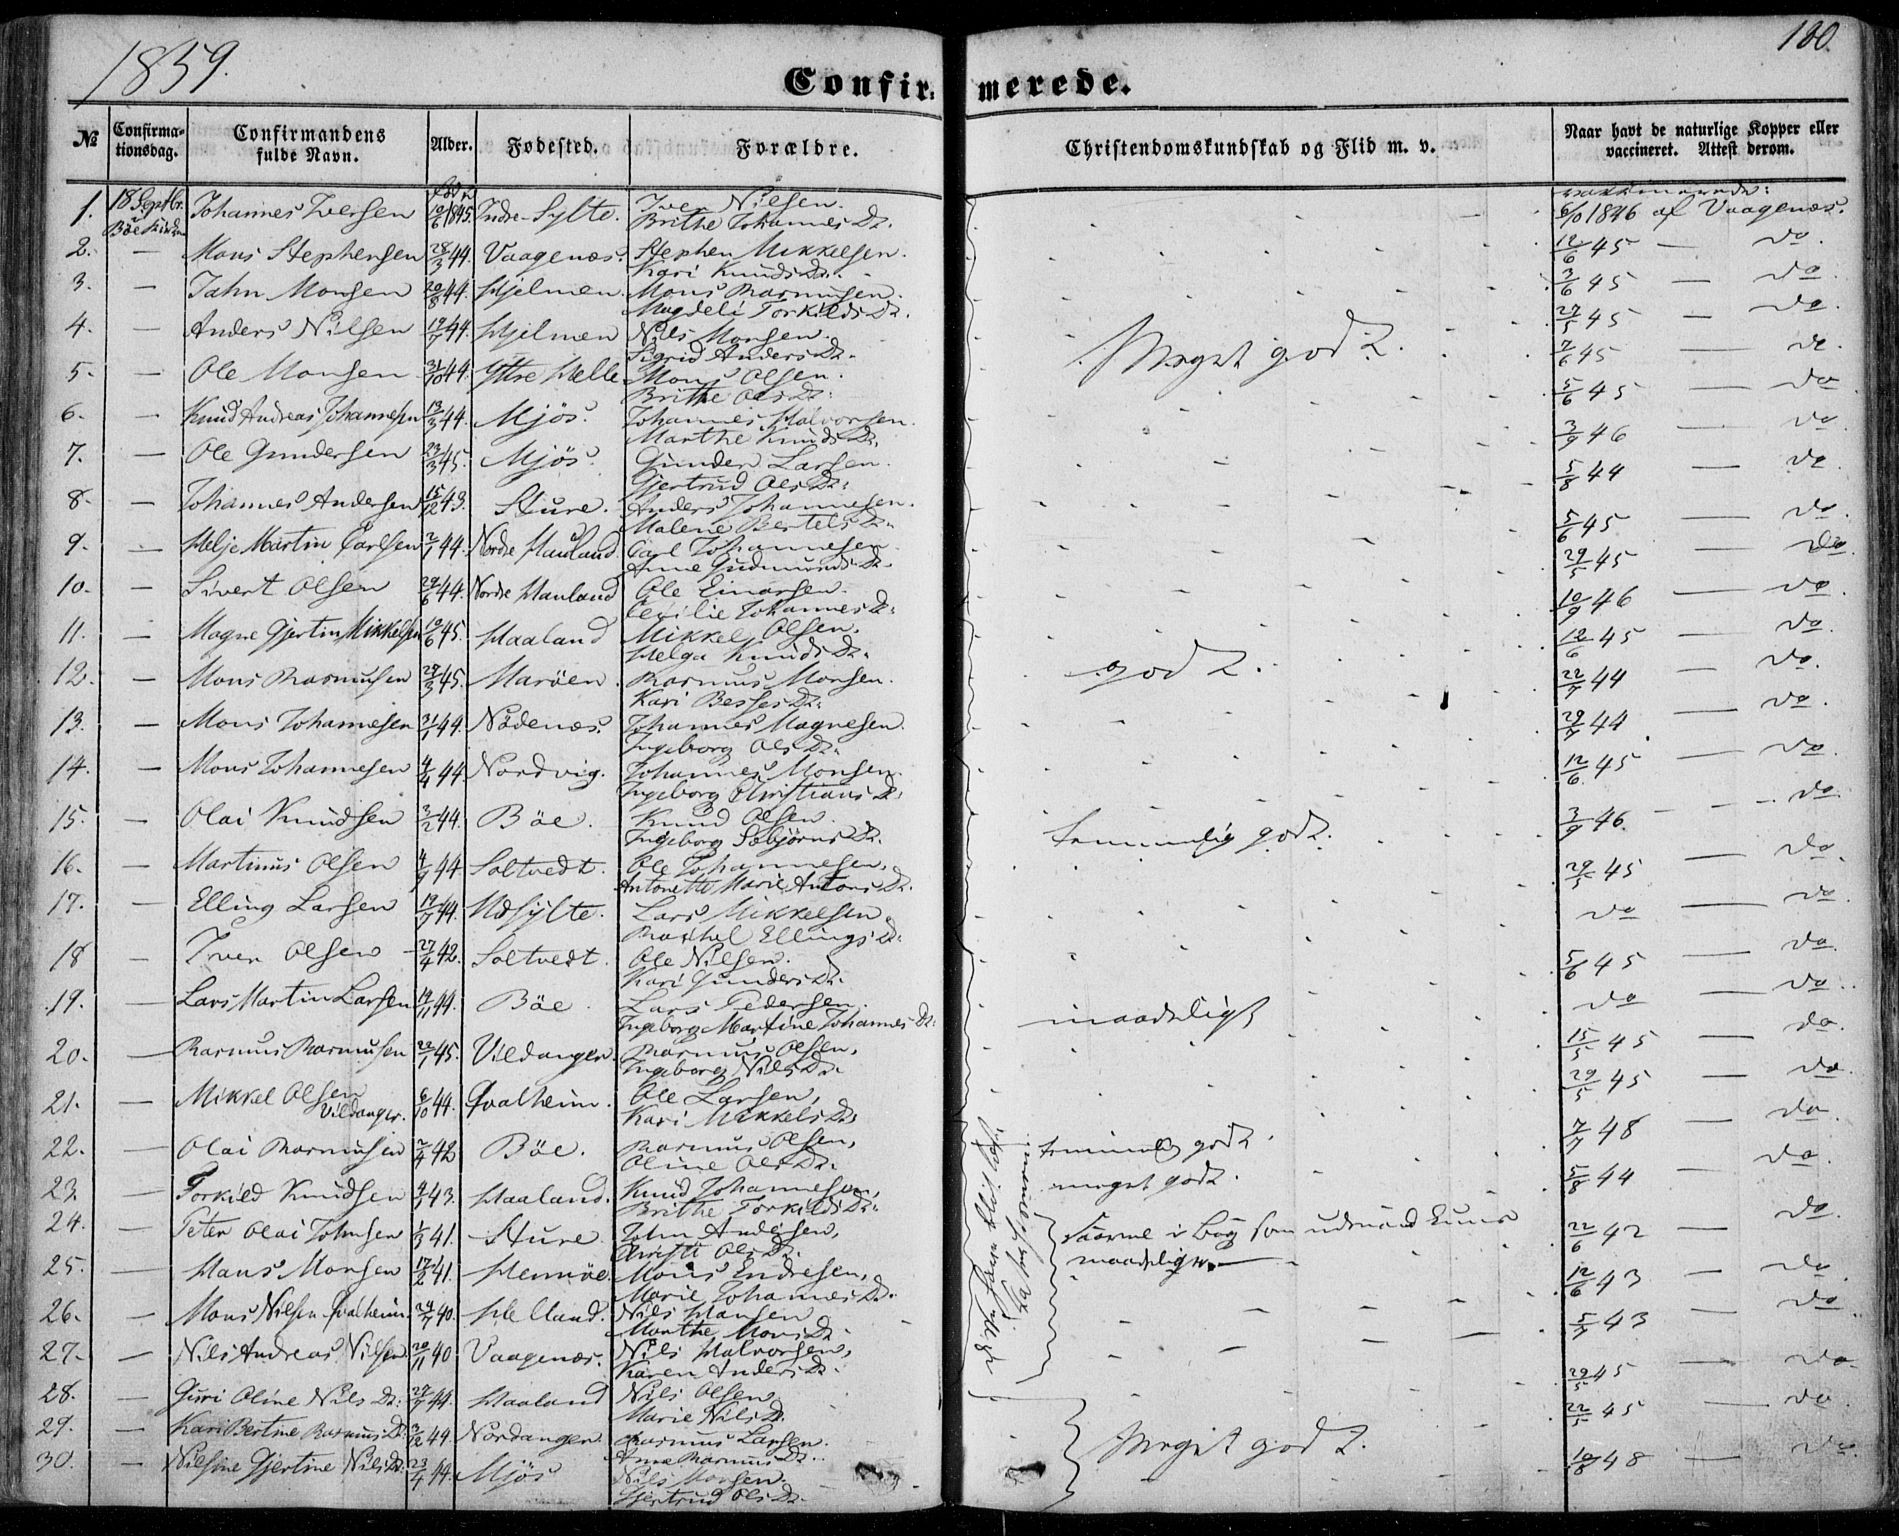 1859.
180.
Confirmerede.
№ | Confirmationsdag. | Confirmandens fulde Navn. | Alder. | Fødested. | Forældre. | Christendomskundskab og Flid m. v. | Naar havt de naturlige Kopper eller vaccineret. Attest derom.
1. | 18 Septbr. Böe Kirke | Johannes Iversen | 19/6 1845. | Indre-Sylte. | Iver Nielsen. Brithe Johannes Dr. | | 6/10 1846 af Vaagenæs.
2. | — | Mons Stephensen | 28/3 44 | Vaagenæs. | Stephen Mikkelsen. Kari Knuds Dr. | | 12/6 45 — do.
3. | — | Jahn Monsen | 20/8 44. | Hjelmen. | Mons Rasmusen. Magdeli Torkilds Dr. | | 3/6 45 — do.
4. | — | Anders Nilsen | 19/7 44. | Hjelmen | Nils Monsen. Sigrid Anders Dr. | Meget godt. | 27/5 45 — do.
5. | — | Ole Monsen | 31/10 44. | Yttre Helle | Mons Olsen. Brithe Ols Dr. | | 7/6 45 — do
6. | — | Knud Andreas Johannesen | 13/3 44. | Mjös. | Johannes Halvorsen. Marthe Knuds Dr. | | 5/6 45 — do
7. | — | Ole Gundersen | 23/3 45. | Mjös. | Gunder Larsen. Gjertrud Ols Dr. | | 3/9 46 — do.
8. | — | Johannes Andersen | 15/12 43. | Sture. | Anders Johannesen. Malene Bertels Dr. | | 5/8 44 — do
9. | — | Helje Martin Carlsen | 2/1 44. | Nordre Hauland. | Carl Johannesen. Anne Gudmunds Dr. | | 5/6 45 — do.
10. | — | Sivert Olsen | 29/6 44. | Nordre Hauland | Ole Einarsen. Cecilie Johannes Dr. | | 29/5 45 — do.
11. | — | Magne Gjertin Mikkelsen | 19/6 45. | Haaland | Mikkel Olsen. Helga Knuds Dr. | | 10/9 46 — do
12. | — | Mons Rasmusen | 29/3 45. | Maröen. | Rasmus Monsen. Kari Besses Dr. | godt. | 12/6 45 — do.
13. | — | Mons Johannesen | 21/1 44. | Nödenæs. | Johannes Magnesen. Ingeborg Ols Dr. | | 22/7 44 — do.
14. | — | Mons Johannesen | 4/4 44 | Nordvig. | Johannes Monsen. Ingeborg Christians Dr. | | 29/7 44 — do.
15. | — | Olai Knudsen | 3/2 44. | Böe. | Knud Olsen. Ingeborg Sebjörns Dr. | temmelig godt. | 12/6 45 — do.
16. | — | Martinus Olsen | 4/9 44 | Soltvedt. | Ole Johannesen. Antonette Marie Antons Dr. | | 3/9 46. — do.
17. | — | Elling Larsen | 19/7 44. | Udsylte. | Lars Mikkelsen Rachel Ellings Dr. | | 29/5 45 — do.
18 | — | Iver Olsen | 27/4 42. | Soltvedt. | Ole Nilsen. Kari Gunders Dr. | | do — do
19. | — | Lars Martin Larsen | 19/11 44. | Böe. | Lars Pedersen. Ingeborg Martine Johannes Dr. | maadeligt | 5/6 45 — do.
20. | — | Rasmus Rasmusen | 22/1 45. | Vildanger | Rasmus Olsen, Ingeborg Nils Dr. | | do — do.
21. | — | Mikkel Olsen Vildanger. | 6/10 44. | Qvalheim. | Ole Larsen, Kari Mikkels Dr. | | 15/5 45 — do.
22. | — | Olai Rasmusen | 2/4 42 | Böe. | Rasmus Olsen, Oline Ols Dr. | temmelig godt. | 29/5 45 — do.
23. | — | Torkild Knudsen | 4/1 43. | Haaland. | Knud Johannesen, Brithe Torkilds Dr. | meget godt. | 7/7 48 — do
24. | — | Peter Olai Johnsen | 1/3 41. | Sture | John Andersen, Christi Ols Dr. | Saavel i Bog som udenad kuns maadelig. — | 5/8 44 — do.
25. | — | Hans Monsen | 17/2 41. | Hennöe | Mons Endresen, Marie Johannes Dr. | | 22/6 42 — do.
26. | — | Mons Nilsen Qvalheim. | 24/7 40. | Helland. | Nils Hansen Marthe Mons Dr. | | 12/6 43 — do.
27. | — | Nils Andreas Nilsen | 20/11 40 | Vaagenæs. | Nils Halvorsen, Karen Anders Dr. | | 5/7 43 — do
28. | — | Guri Oline Nils Dr. | 27/7 44. | Haaland | Nils Olsen Marie Nils Dr. | | 29/5 45 — do.
29. | — | Kari Bertine Rasmus Dr. | 3/12 44. | Nordanger. | Rasmus Larsen. Anna Rasmus Dr. | Meget godt. | 22/5 45 — do.
30. | — | Nilsine Gjertine Nils Dr. | 23/4 44. | Mjös | Nils Monsen. Gjertrud Ols Dr. | | 10/8 48 — do